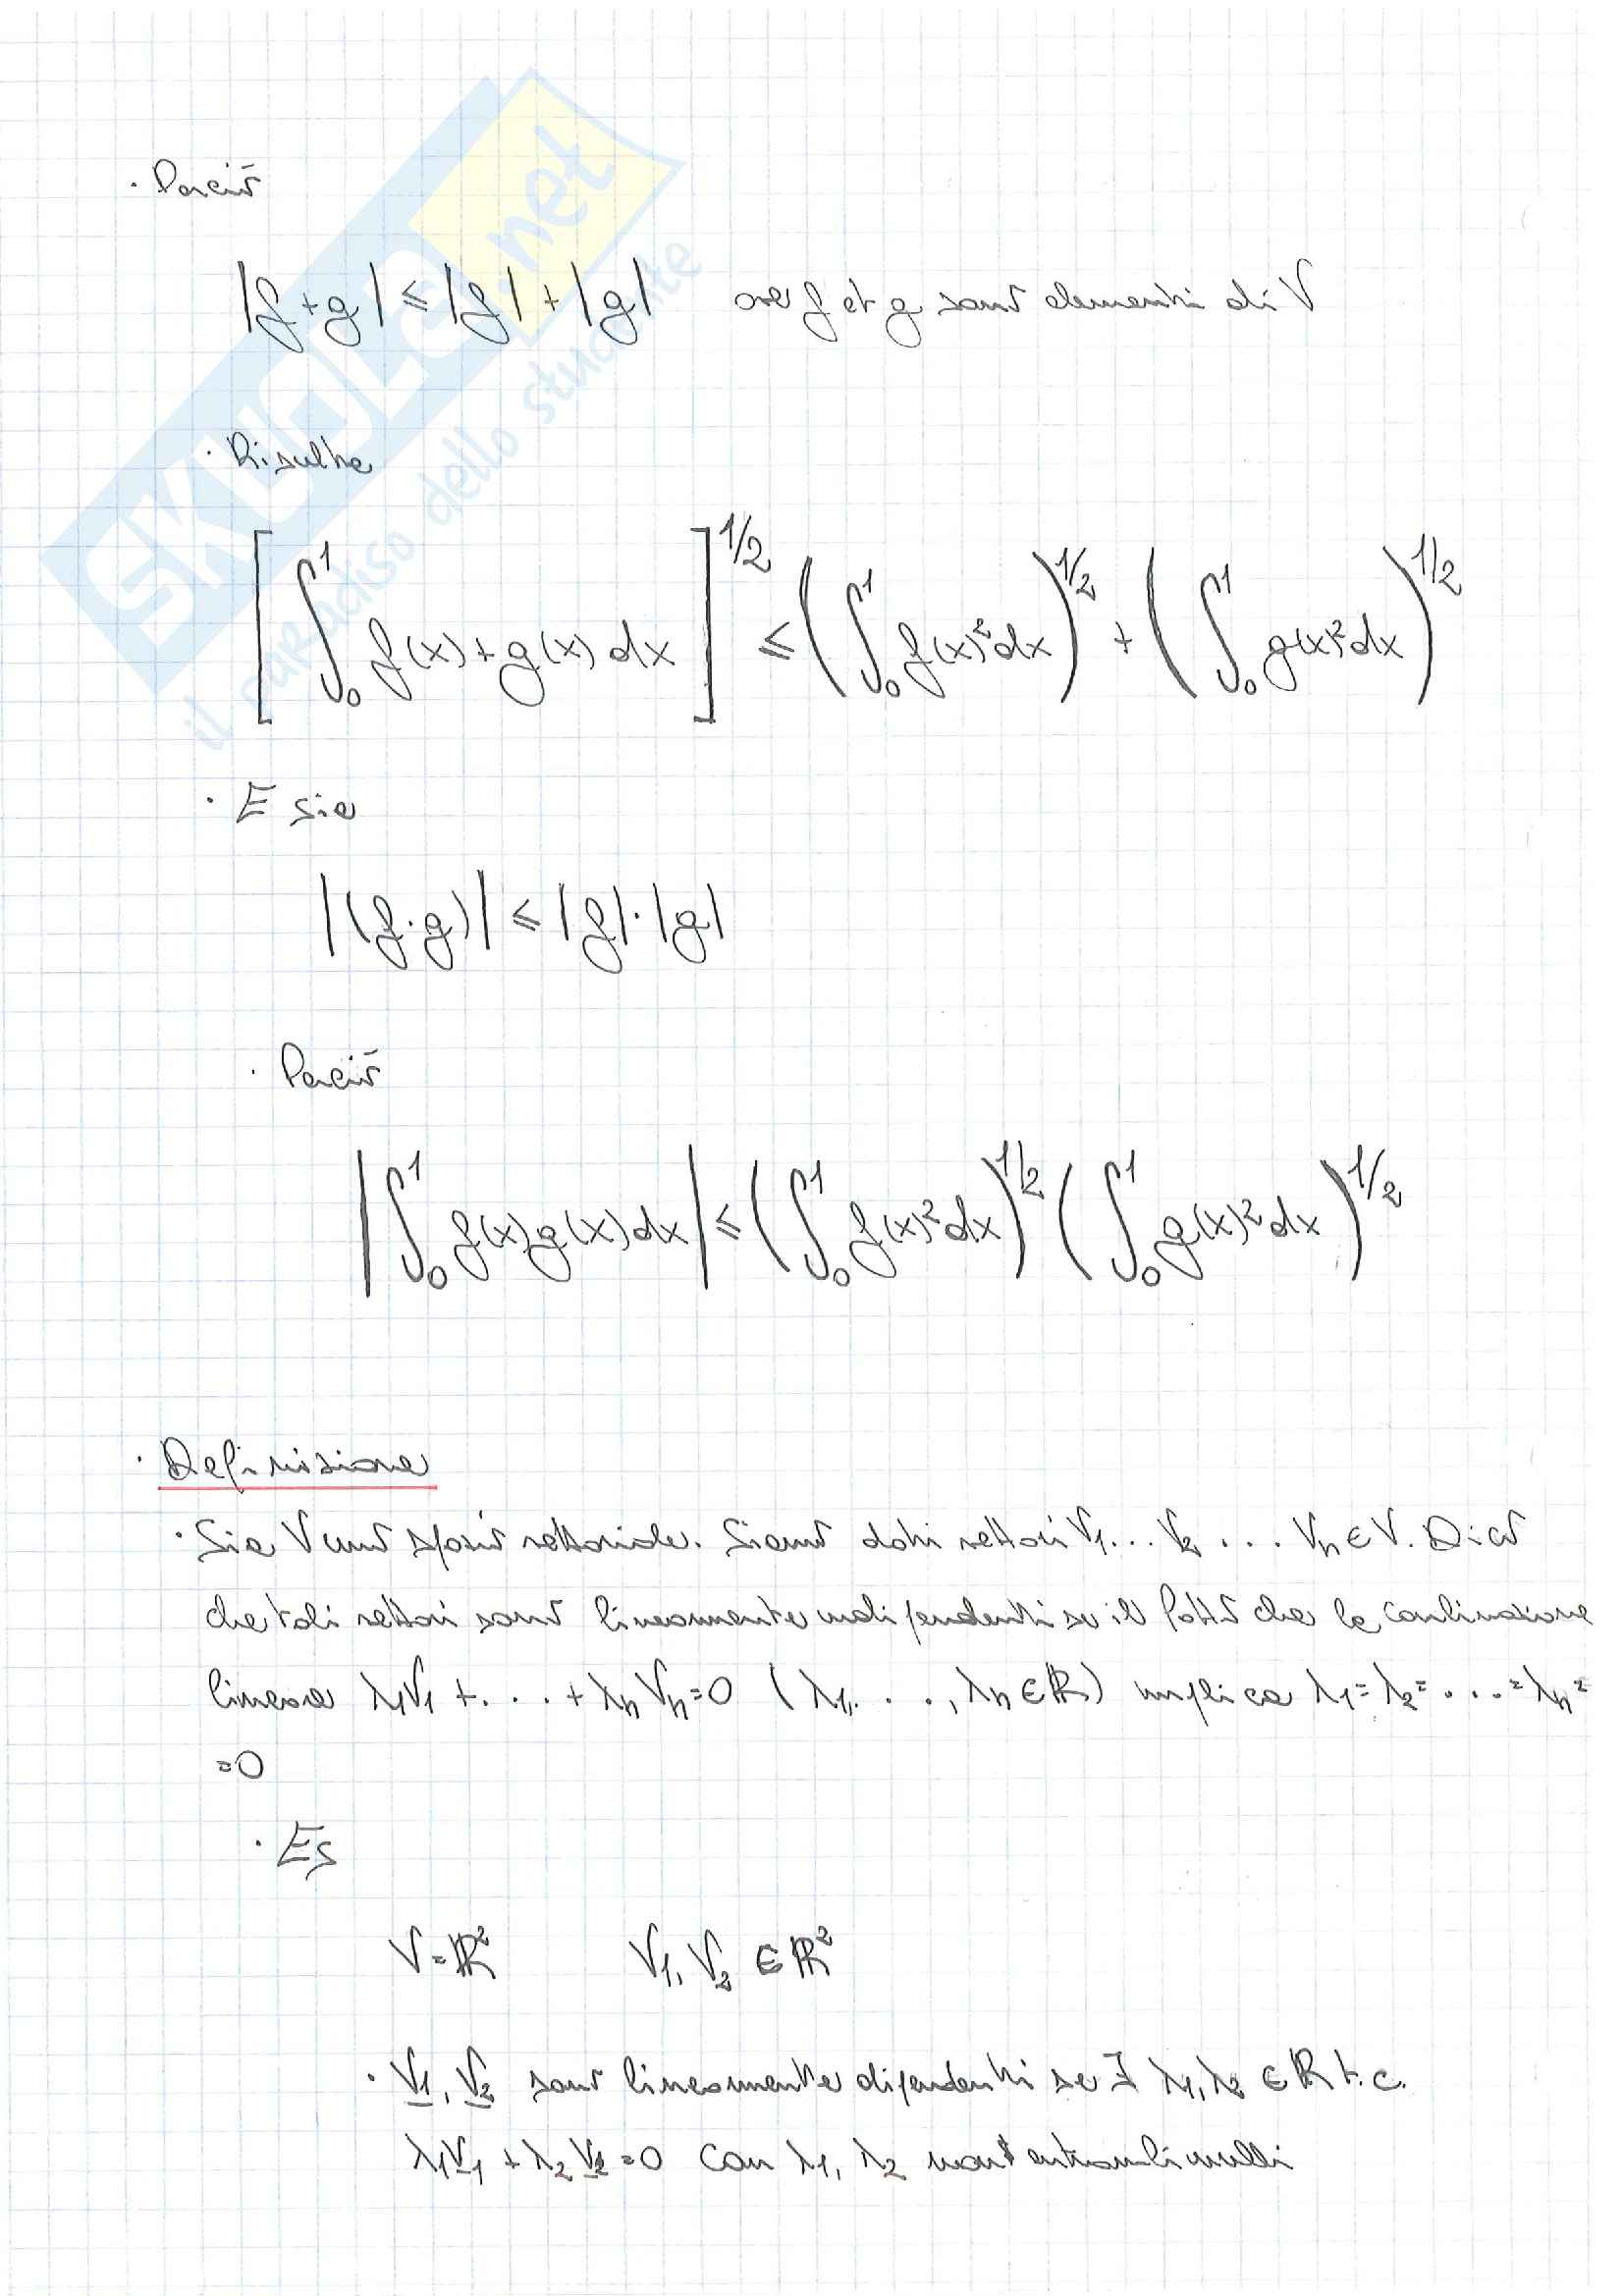 · Perciò
|f+g| ≤ |f| + |g| ove f et g sono elementi di V
· Risulta
[∫₀¹ f(x)+g(x) dx]^1/2 ≤ (∫₀¹ f(x)² dx)^1/2 + (∫₀¹ g(x)² dx)^1/2
· E sia
|(f·g)| ≤ |f|·|g|
· Perciò
|∫₀¹ f(x)g(x)dx| ≤ (∫₀¹ f(x)² dx)^1/2 (∫₀¹ g(x)² dx)^1/2
· Definizione
· Sia V uno spazio vettoriale. Siano dati vettori V₁... V₂ ... Vₙ ∈ V. Dico
che tali vettori sono linearmente indipendenti se il fatto che la combinazione
lineare λ₁V₁ + ... + λₙVₙ=0 (λ₁, ..., λₙ ∈ ℝ) implica λ₁=λ₂= ... =λₙ=
=0
· Es
V=ℝ² V₁, V₂ ∈ ℝ²
· V₁, V₂ sono linearmente dipendenti se ∃ λ₁,λ₂ ∈ ℝ t.c.
λ₁V₁ + λ₂V₂ =0 con λ₁, λ₂ non entrambi nulli
SKUOLA.net
il paradiso dello studente